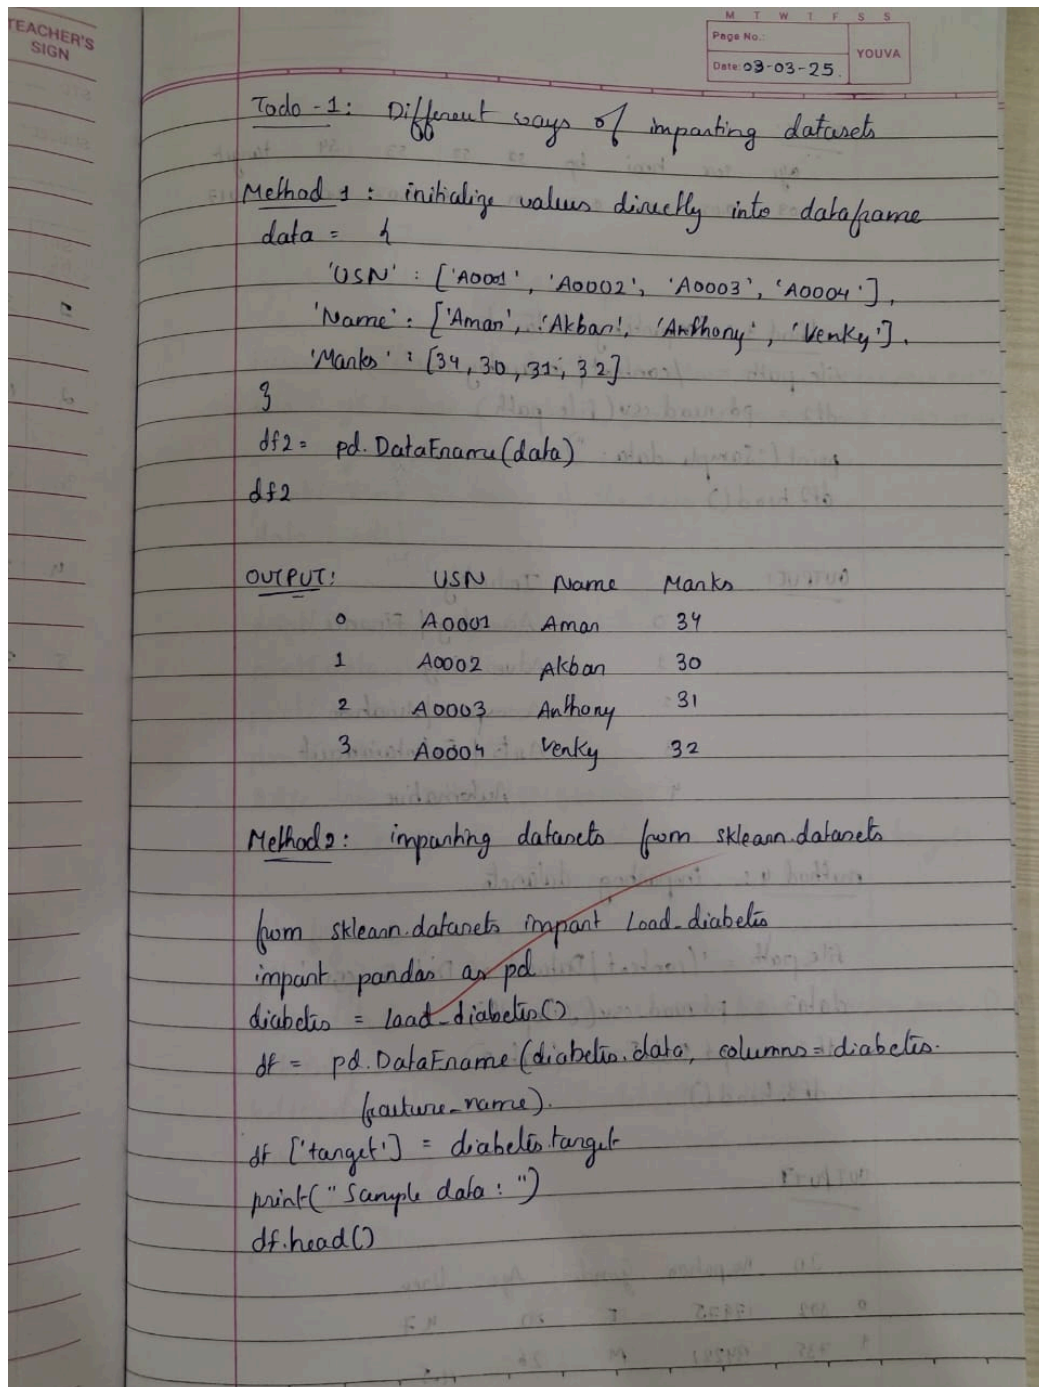 TEACHER'S
SIGN
M T W T F S S
Page No.:
YOUVA
Date: 03-03-25.
Todo-1: Different ways of importing datasets
Method 1: initialize values directly into dataframe
data = {
'USN' : ['A0001', 'A0002', 'A0003', 'A0004'],
'Name' : ['Aman', 'Akbar', 'Anthony', 'Venky'],
'Marks' : [34, 30, 31, 32]
}
df2 = pd.DataFrame(data)
df2
OUTPUT: USN Name Marks
0 A0001 Aman 34
1 A0002 Akbar 30
2 A0003 Anthony 31
3 A0004 Venky 32
Method 2: importing datasets from sklearn.datasets
from sklearn.datasets import load_diabetes
import pandas as pd
diabetes = load_diabetes()
df = pd.DataFrame(diabetes.data, columns = diabetes.
feature_name).
df ['target'] = diabetes.target
print("Sample data : ")
df.head()